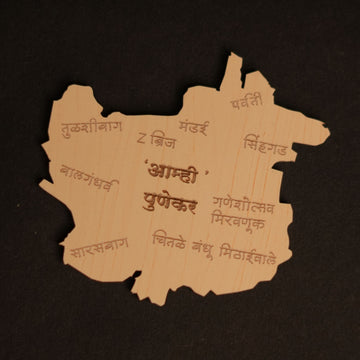 पर्वती
तुळशीबाग
Z ब्रिज
मंडई
सिंहगड
बालगंधर्व
'आम्ही'
पुणेकर
गणेशोत्सव
मिरवणूक
सारसबाग
चितळे बंधू मिठाईवाले